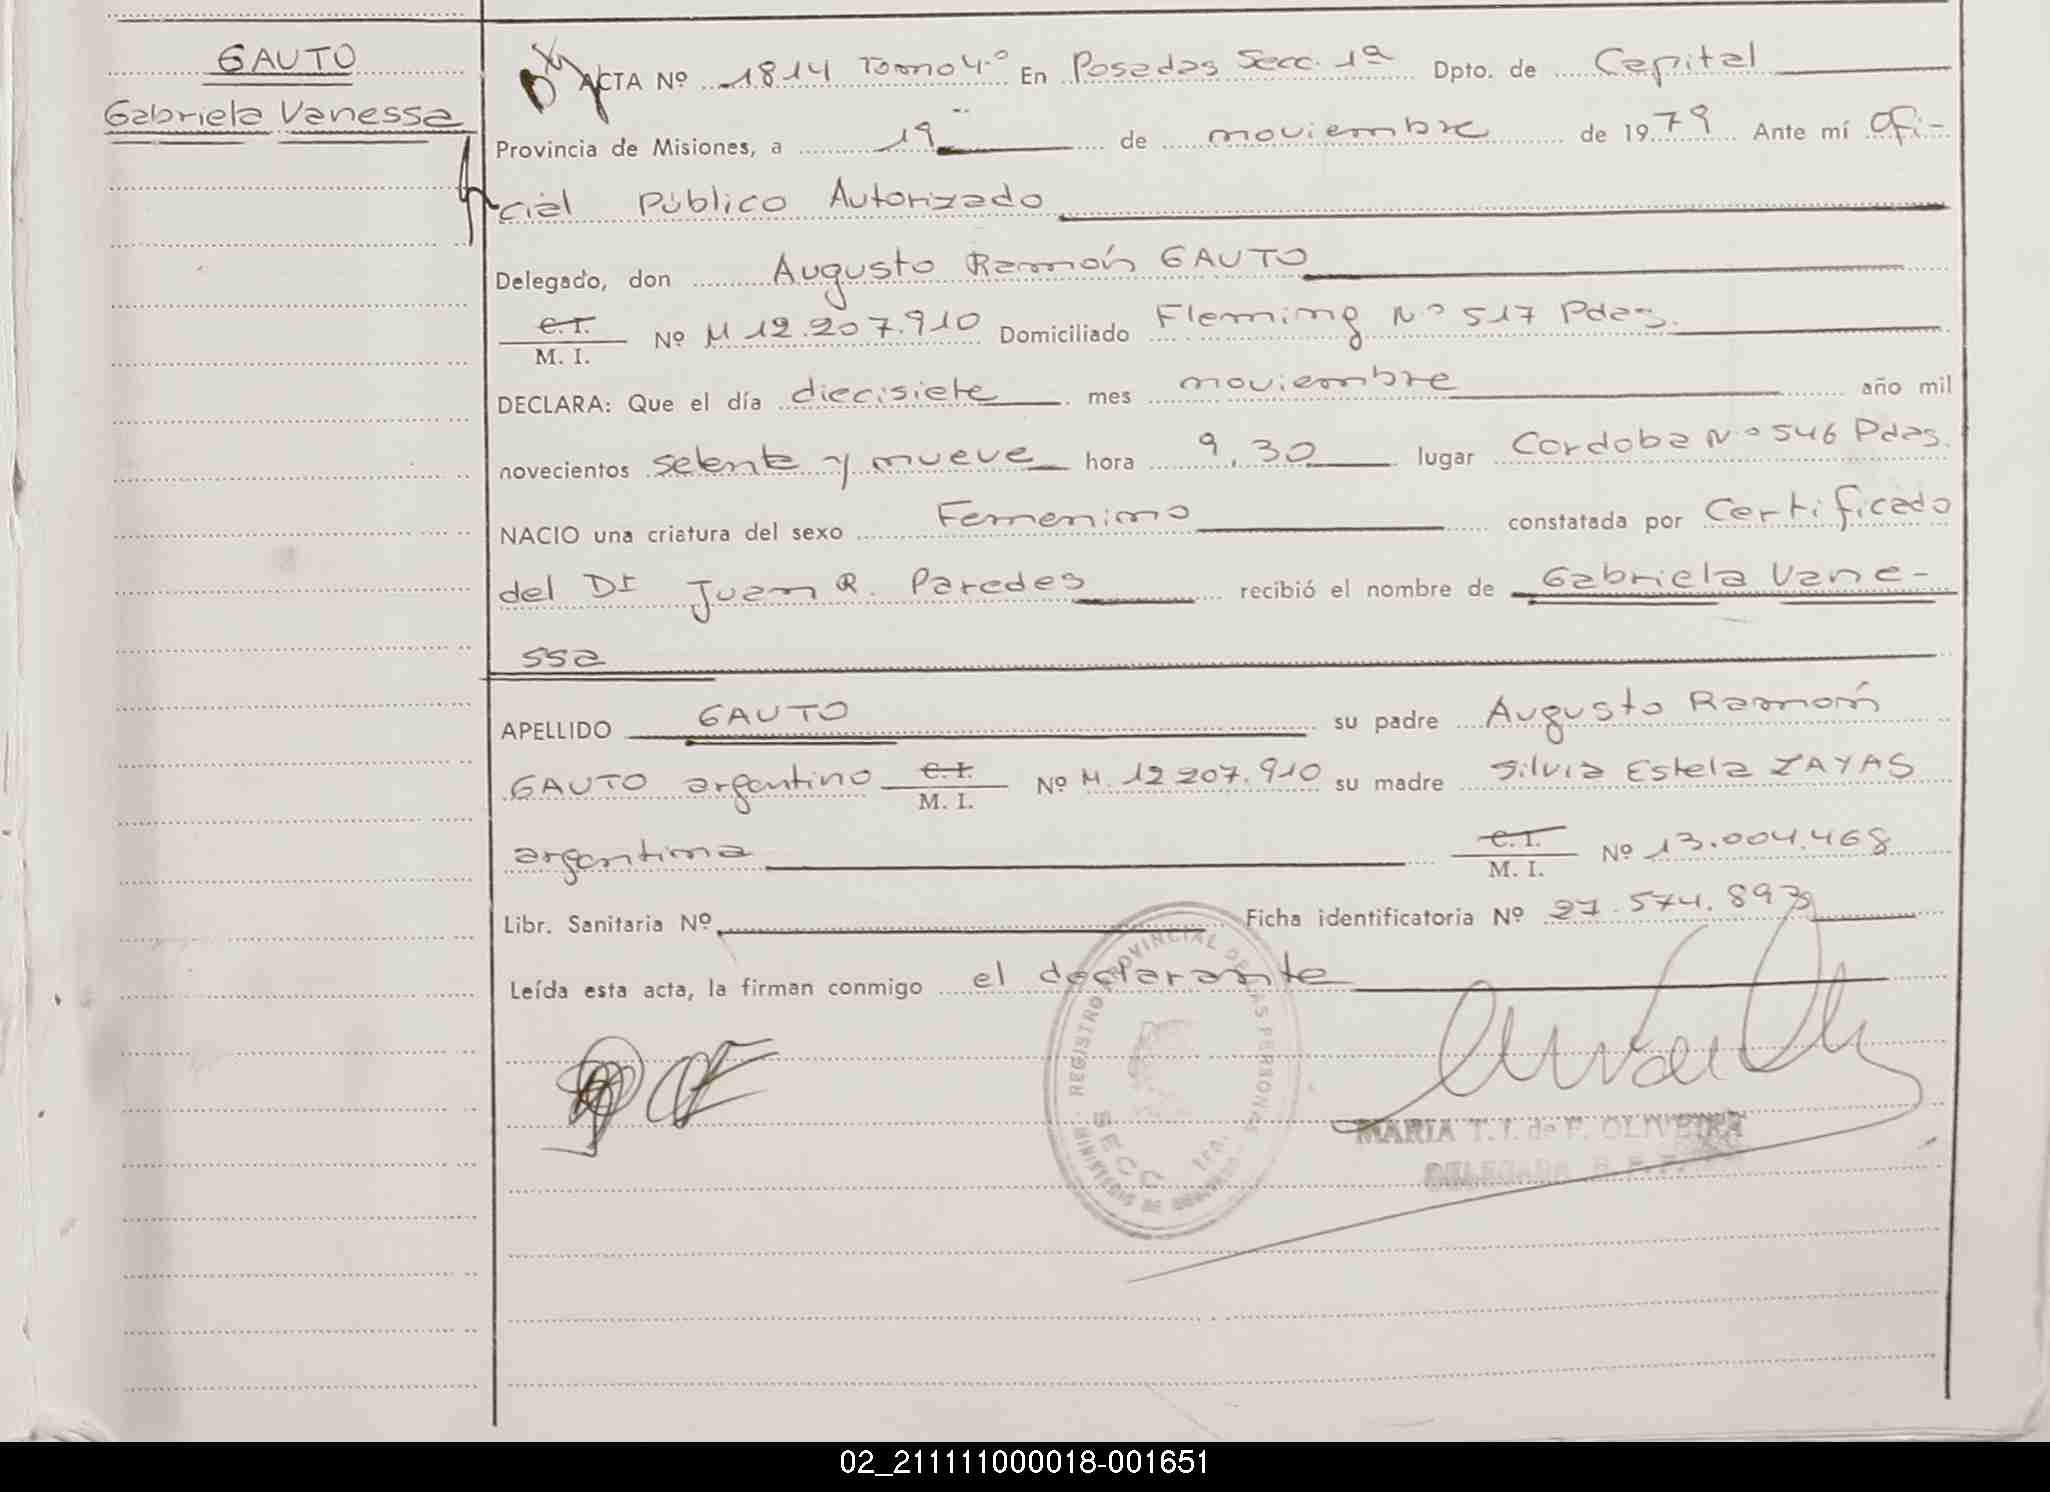 GAUTO
Gabriela Vanessa
ACTA Nº 1814 Tomo 4º En Posadas Secc. 1ª Dpto. de Capital
Provincia de Misiones, a 19 de noviembre de 1979 Ante mí Ofi-
cial Público Autorizado
Delegado, don Augusto Ramón GAUTO
C.I. / M. I. Nº M 12.207.910 Domiciliado Fleming Nº 517 Pdas.
DECLARA: Que el día diecisiete mes noviembre año mil
novecientos setenta y nueve hora 9,30 lugar Cordoba Nº 546 Pdas.
NACIO una criatura del sexo Femenino constatada por Certificado
del Dr Juan R. Paredes recibió el nombre de Gabriela Vane-
ssa
APELLIDO GAUTO su padre Augusto Ramón
GAUTO argentino C.I. / M. I. Nº M. 12 207.910 su madre Silvia Estela ZAYAS
argentina C.I. / M. I. Nº 13.004.468
Libr. Sanitaria Nº Ficha identificatoria Nº 27.574.893
Leída esta acta, la firman conmigo el declarante
REGISTRO PROVINCIAL DE LAS PERSONAS
SECC 1ra.
MINISTERIO DE GOBIERNO
MARIA T. I. de F. OLIVEIRA
DELEGADA
02_211111000018-001651